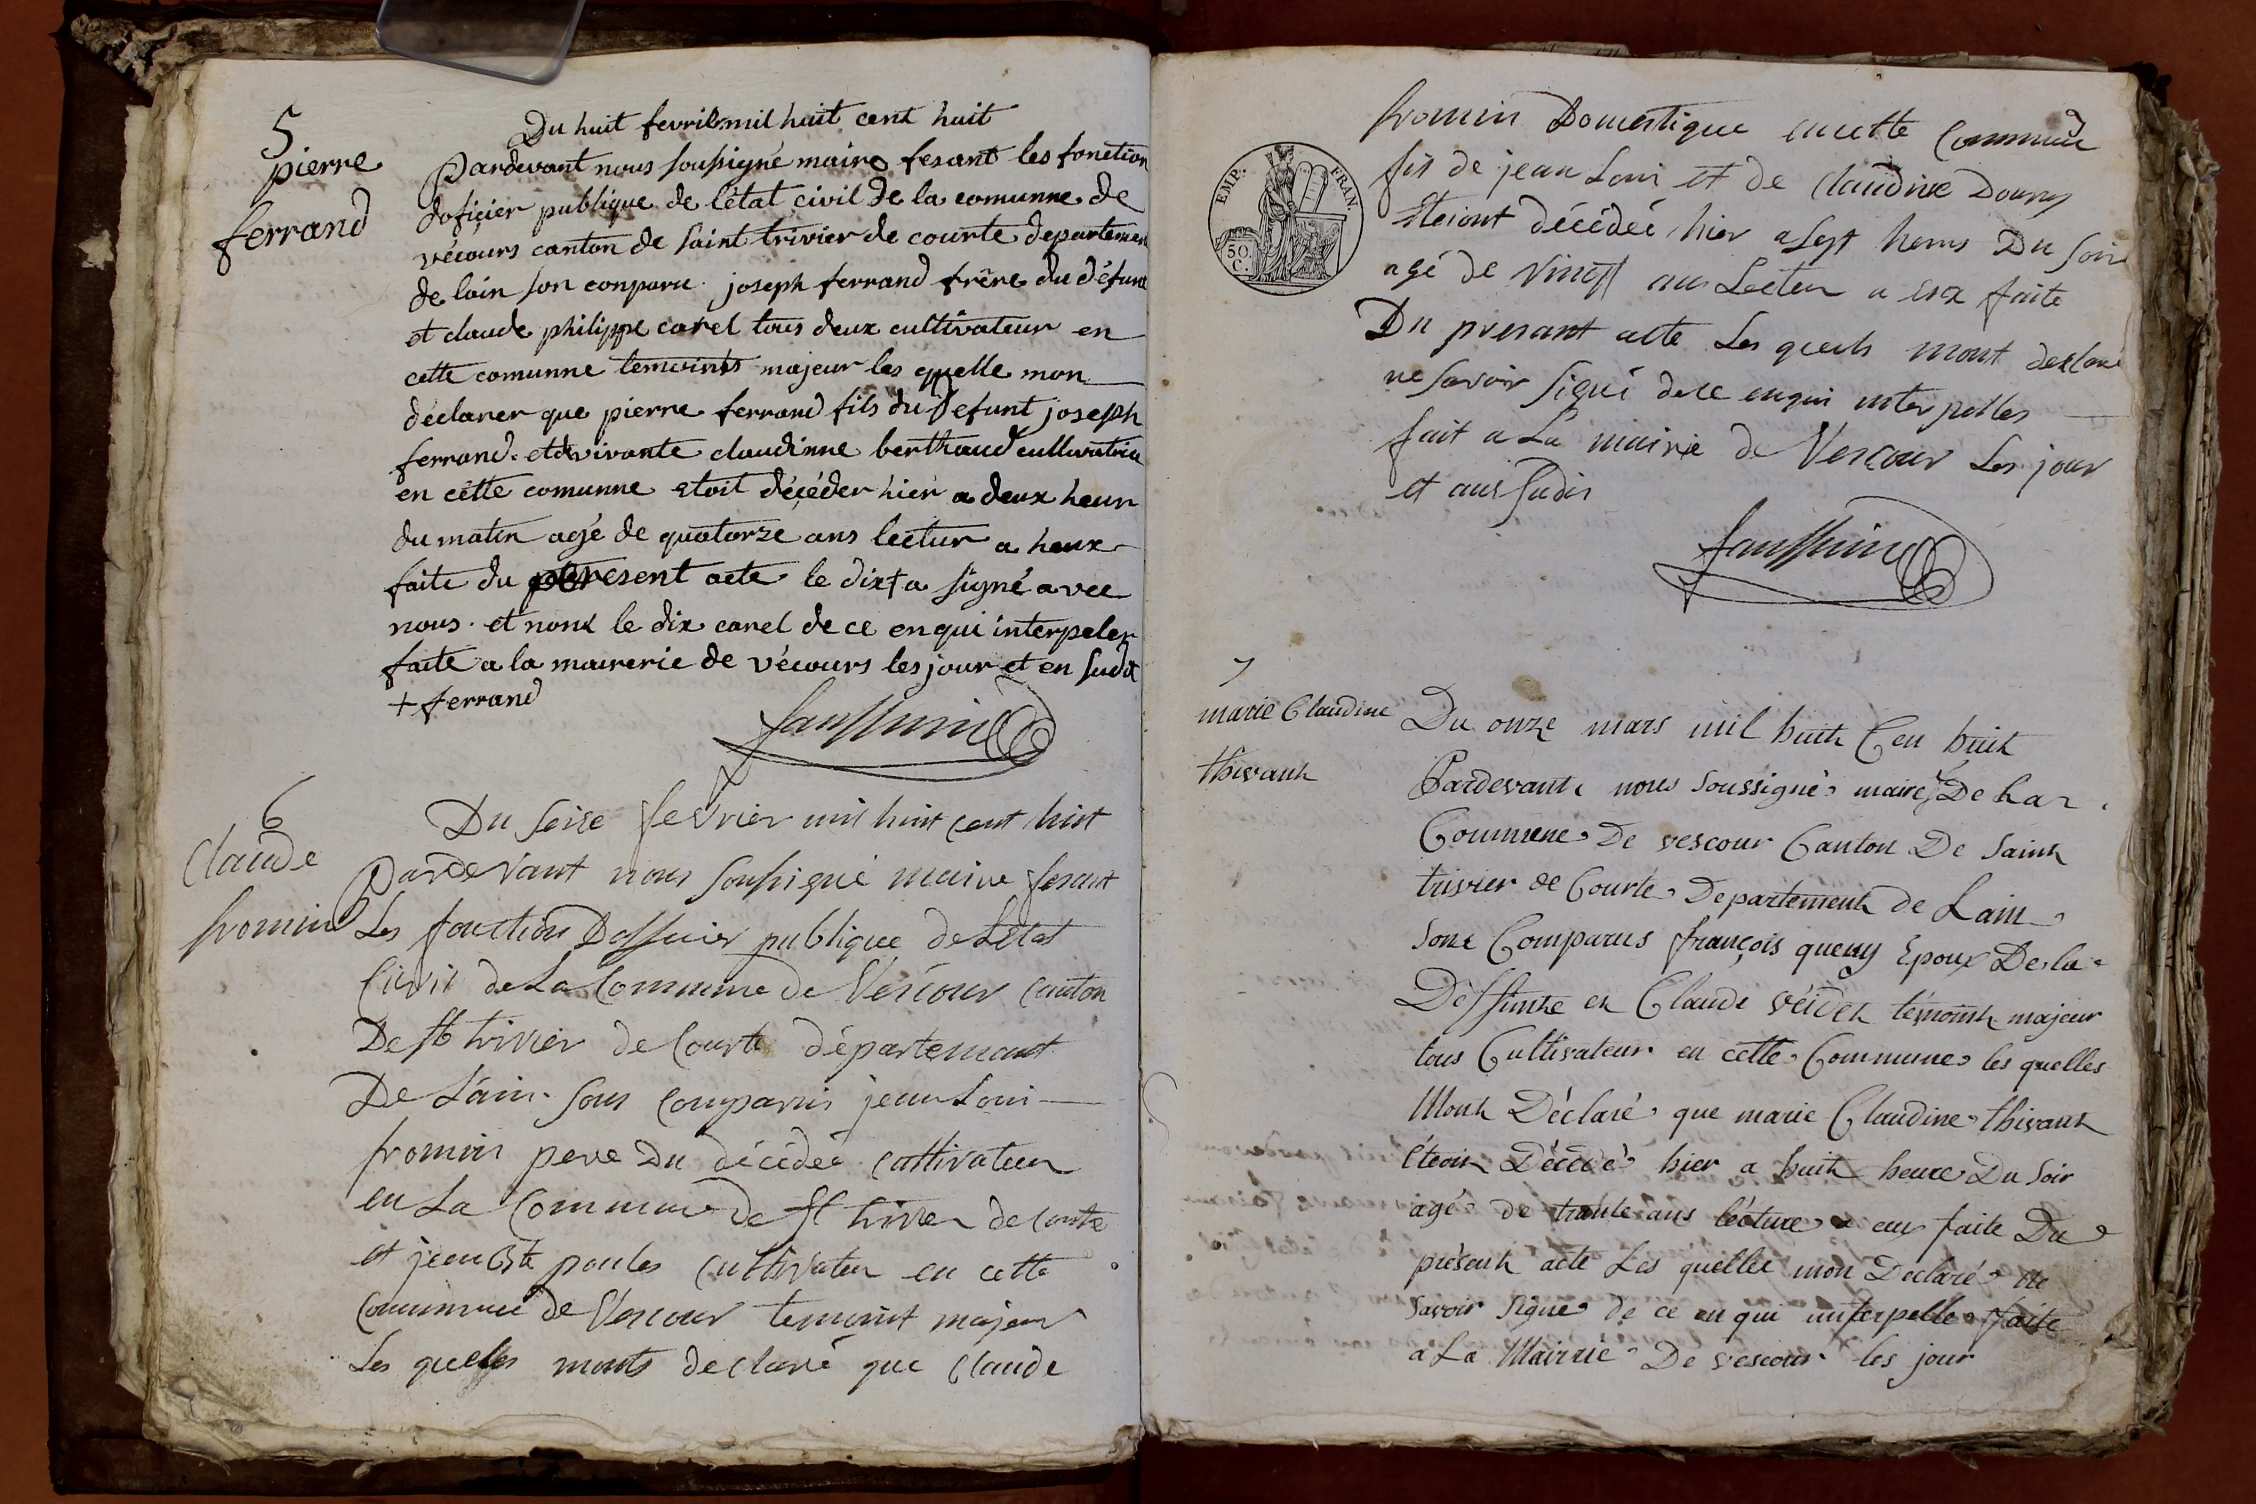 5
pierre
ferrand
Du huit fevrile mil huit cent huit
Pardevant nous soussigné maire fesant les fonction
doficier publique de létat civil de la comunne de
vécours canton de saint trivier de courte departemen
de lain son conparu joseph ferrand frére du défunt
et claude philippe carel tous deux cultivateur en
cette comunne temoints majeur les quelle mon
déclarer que pierre ferrand fils du defunt joseph
ferrand et de vivante claudinne berthaud cultivatrice
en cette comunne etoit décéder hier a deux heur
du matin agé de quatorze ans lectur a heux
faite du present acte le dix + a signé avec
nous et nont le dix carel de ce enqui interpeler
faite a la mairerie de vécours les jour et en sudit
+ ferrand
6
Claude
fromin
Du seise fevrier mil huit cent huit
Pardevant nous soussigné maire fesant
Les fonction Dofficier publique de Létat
Civil de La Commune de Vescour Canton
De st trivier de Courte département
De Lain sons comparus jean Loui
fromin pere Du décédeé cultivateur
en La Commune De st trivier de Courte
et jean Bte poules cultivateur en cette
Commune de Vescour temoint majeur
Les quelles monts declaré que Claude
fromin Domestique en cette Commune
EMP. FRAN.
50.
C.
fis de jean Loui et de Claudine
éteiont décédeé hier a sept heurs Du soir
agé de Vingt ans Lectur a eux faite
Du presant acte Les quels mont declaré
ne savoir signé de ce enqui interpelles
fait a La mairie de Vescour Les jour
et ans sudis
7
marie Claudine
thivant
Du onze mars mil huit Cen huit
Pardevant nous soussigné maire De La
Commune De vescour Canton De Saint
trivier de Courte Departement de Lain
sont Comparus françois queny Epoux De la
Déffunte et Claude témoint majeur
tous Cultivateur en cette Commune les quelles
Mont Déclaré que marie Claudine thivant
étoit Décédé hier a huit heure Du Soir
agé de trante ans lécture a eux faite Du
présent acte Les quelle mon Déclaré ne
savoir signe de ce en qui interpelle faite
a La Mairrie De vescour les jour